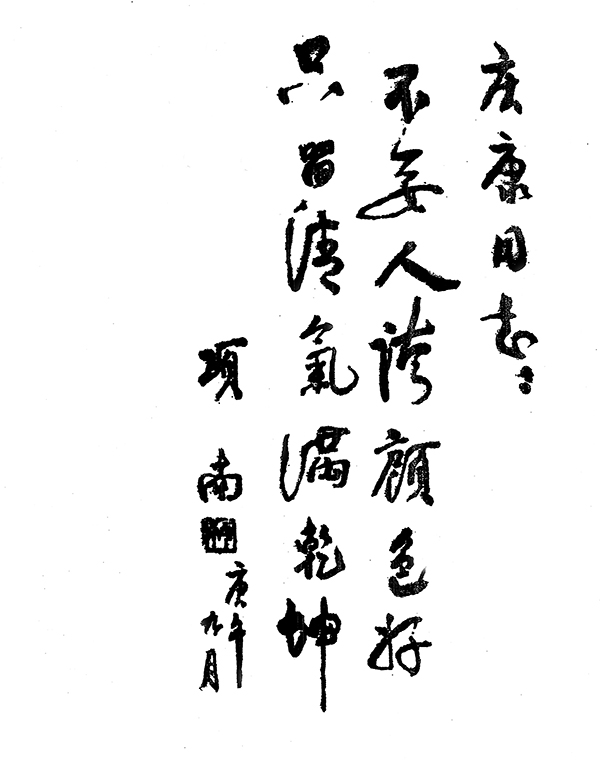 庆康同志：
不要人誇顔色好
只留清氣滿乾坤
項南
庚午
九月